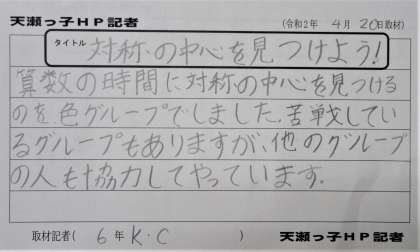 天瀬っ子HP記者 (令和2年 4月 20日取材)
タイトル 対称の中心を見つけよう!
算数の時間に対称の中心を見つける
のを色グループでしました。苦戦してい
るグループもありますが、他のグループ
の人も協力してやっています。
取材記者( 6年 K・C ) 天瀬っ子HP記者